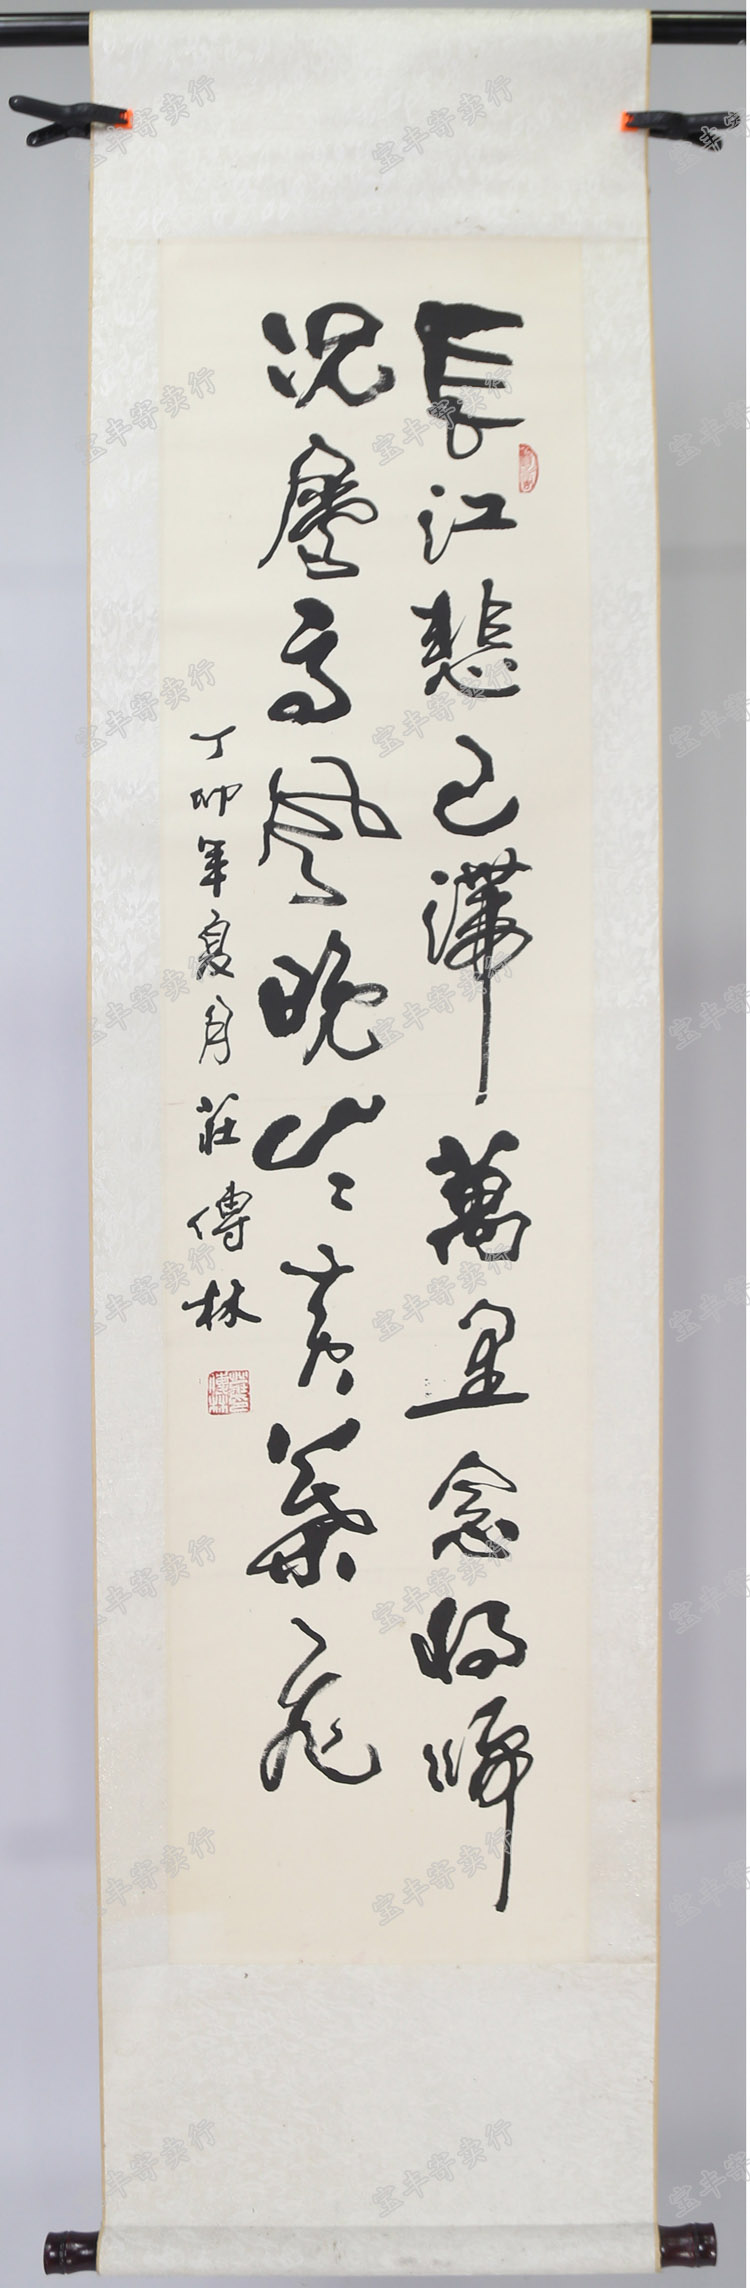 長江悲已滯萬里念將歸
況屬高風晚山々黄葉飛
丁卯年夏月莊傳林
宝丰寄卖行